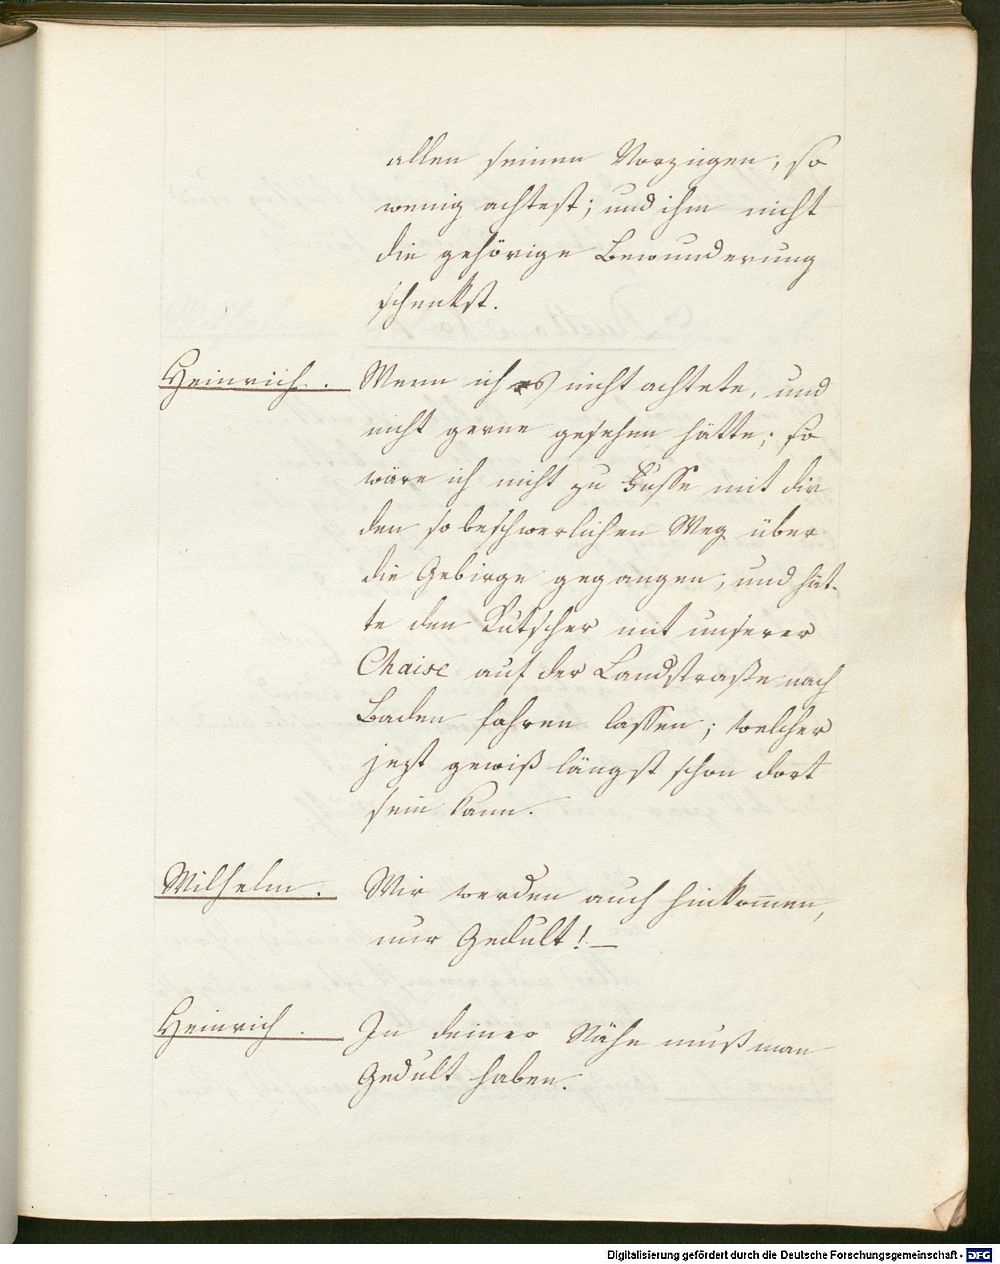 allen seinen Vorzügen, so
wenig achtest; und ihm nicht
die gehörige Bewunderung
schenkst.
Heinrich. Wenn ich es nicht achtete, und
nicht gerne gesehen hätte; so
wäre ich nicht zu Fusse mit dir
den so beschwerlichen Weg über
die Gebirge gegangen; und hät-
te den Kutscher mit unserer
Chaise auf der Landstraße nach
Baden fahren lassen; welcher
jezt gewiß längst schon dort
sein kann.
Wilhelm. Wir werden auch hinkom̅en,
nur Gedult! –
Heinrich. In deiner Nähe muß man
Gedult haben.
Digitalisierung gefördert durch die Deutsche Forschungsgemeinschaft - DFG